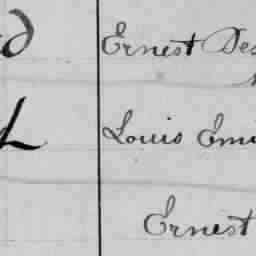 Ernest Des
Louis Emi
Ernest